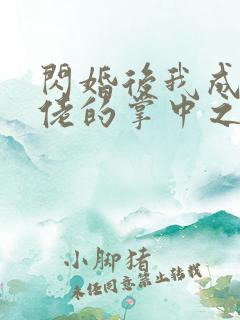 閃婚後我成
佬的掌中之
小脚猪
未经同意禁止转载